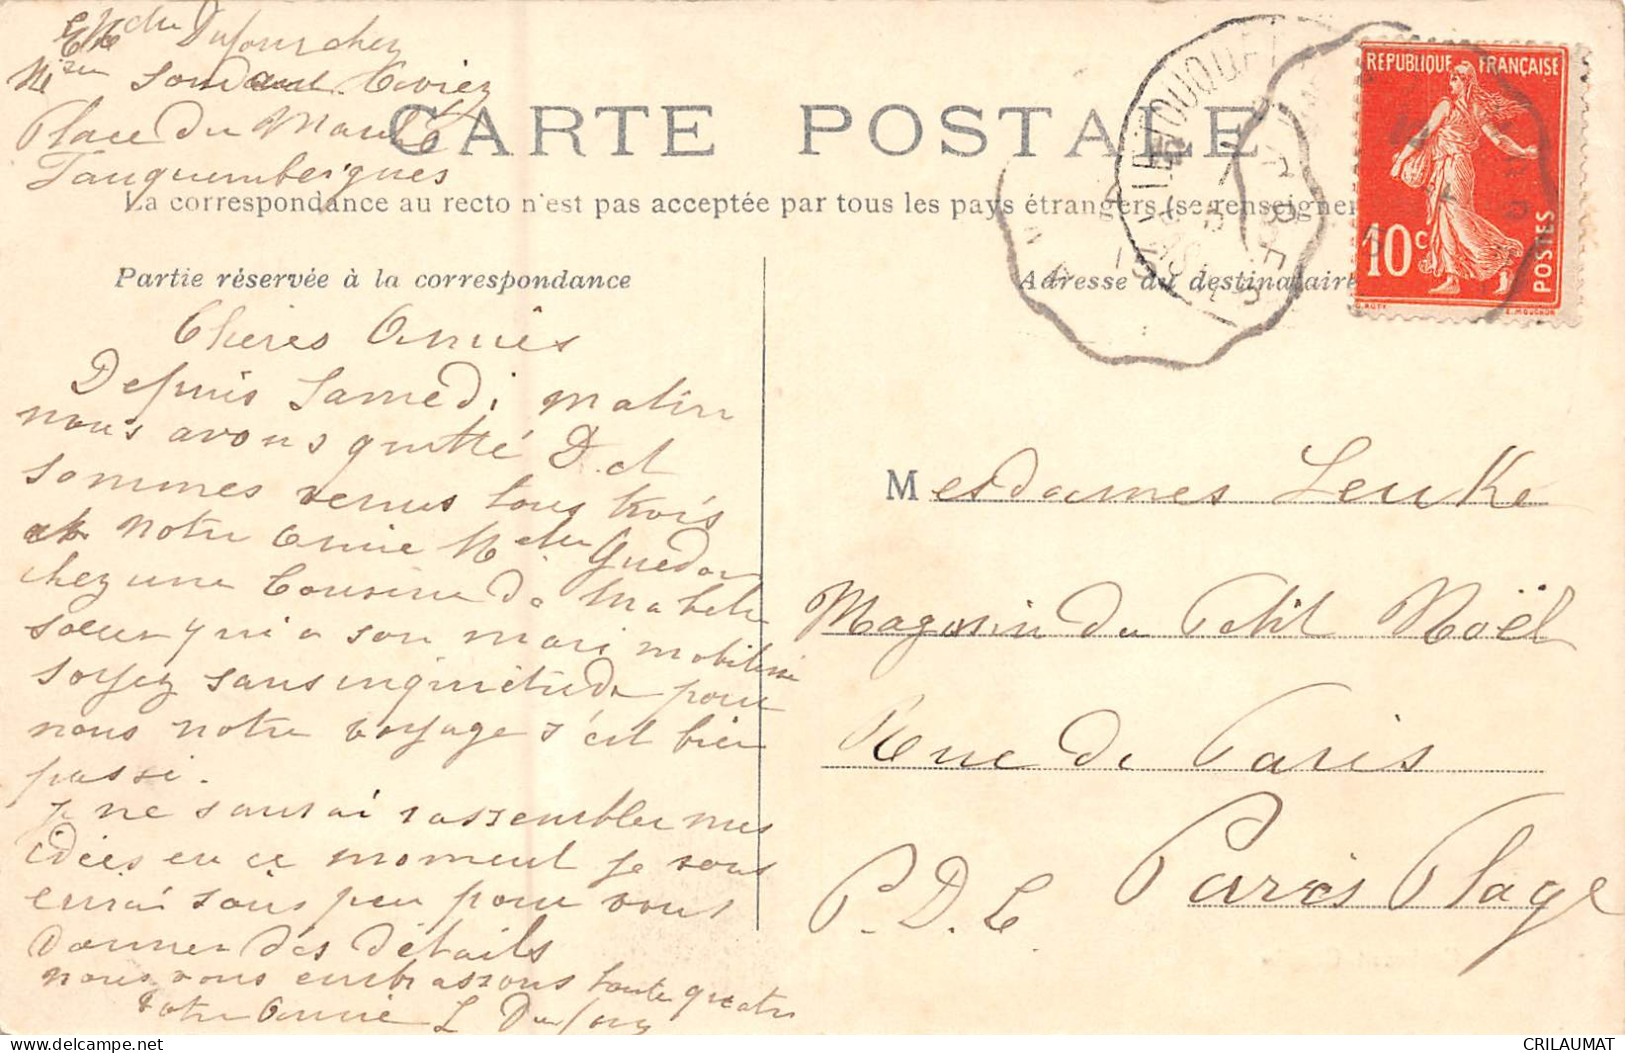 Dufour chez
Place du Marché
Fauquembergues
CARTE POSTALE
La correspondance au recto n'est pas acceptée par tous les pays étrangers (se renseigner
Partie réservée à la correspondance
Adresse du destinataire
REPUBLIQUE FRANÇAISE
10c
POSTES
Chères Amies
Depuis Samedi matin
nous avons quitté D. et
sommes venus tous trois
notre amie
chez une Cousine de
soeur qui a son mari mobilisé
soyez sans inquiétude pour
nous notre voyage s'est bien
passé.
Je ne saurai rassembler mes
idées en ce moment je vous
écrirai sous peu pour vous
donner des détails
nous vous embrassons toute quatre
Votre Amie L Dufour
Mesdames Leuke
Magasin du Petit Noël
Rue de Paris
Paris Plage
P. D. C.
CRILAUMAT